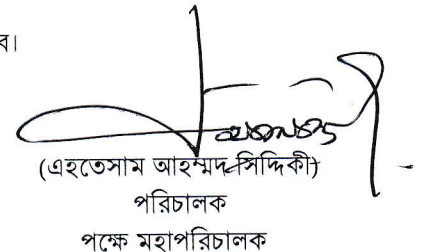 ব।
(এহতেসাম আহম্মদ সিদ্দিকী)
পরিচালক
পক্ষে মহাপরিচালক